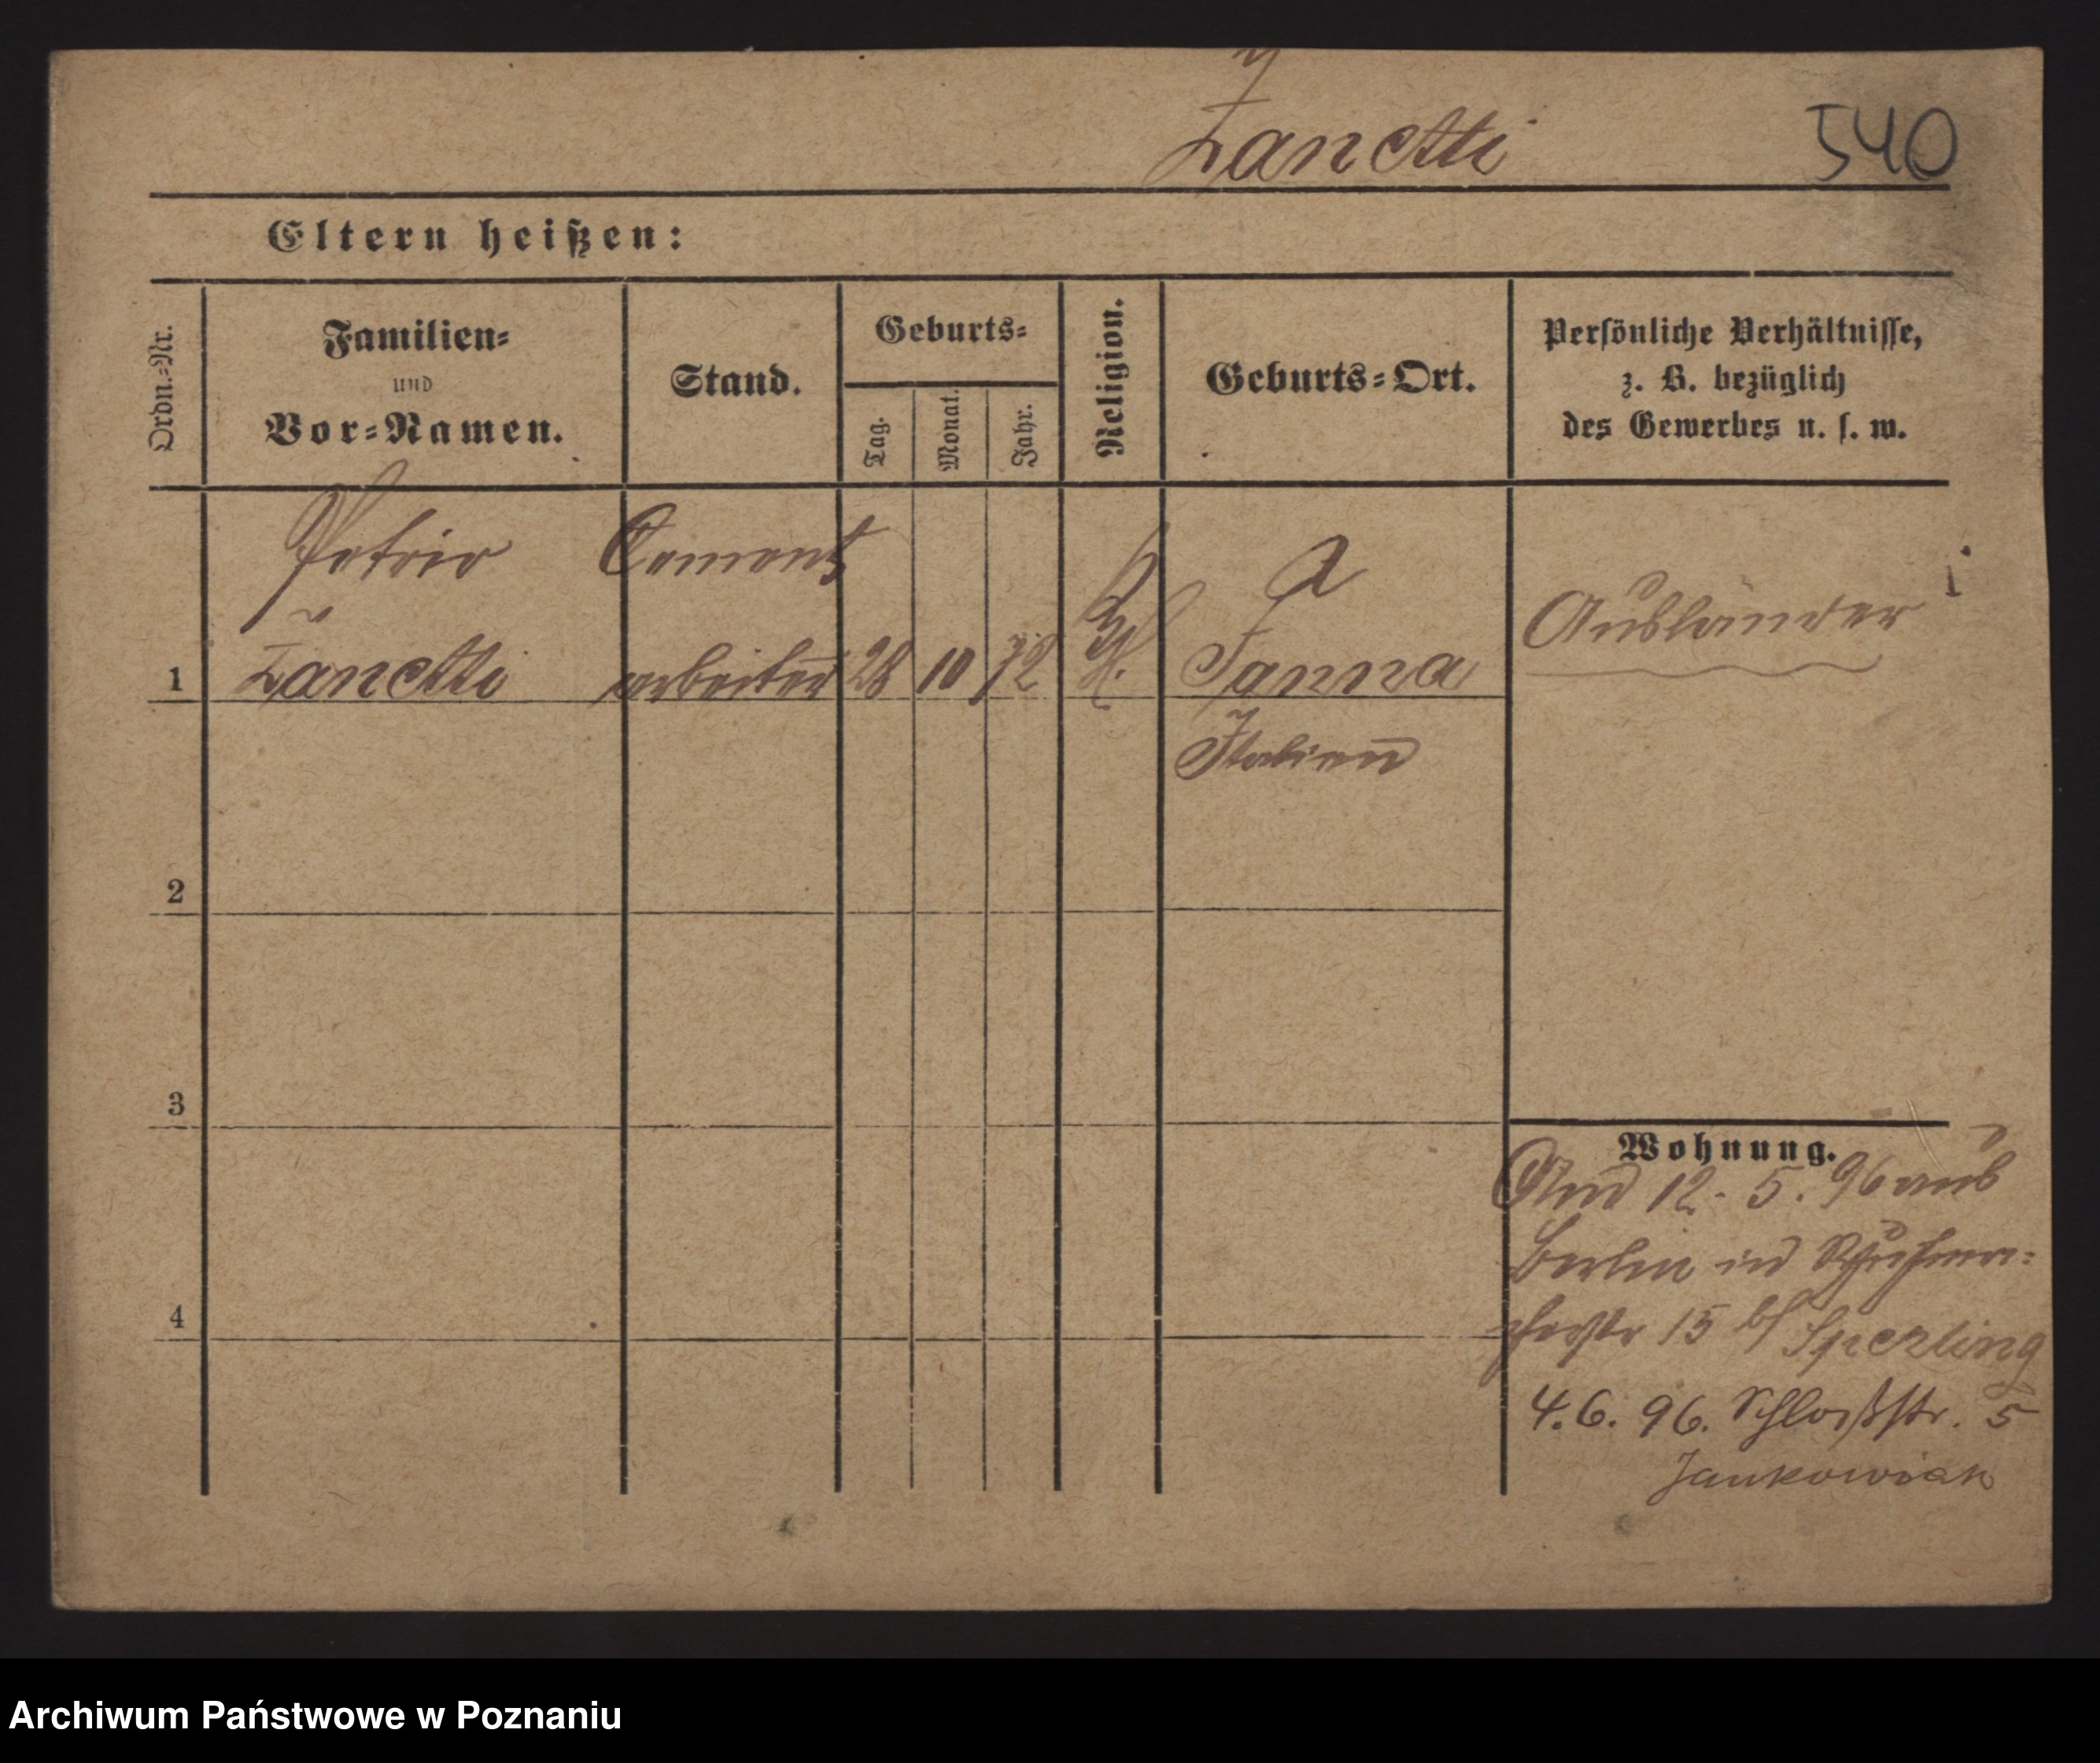 Zanetti
540
Eltern heißen:
Ordn.-Nr.
Familien-
und
Vor-Namen.
Stand.
Geburts-
Tag.
Monat.
Jahr.
Religion.
Geburts-Ort.
Persönliche Verhältnisse,
z. B. bezüglich
des Gewerbes u. s. w.
1
Zanetti
Cement
arbeiter
28 10 72
Fanna
Italien
Ausländer
2
3
4
Wohnung.
12. 5. 96 aus
Berlin in
15 b/ Sperling
4. 6. 96. Schloßstr. 5
Jankowiak
Archiwum Państwowe w Poznaniu